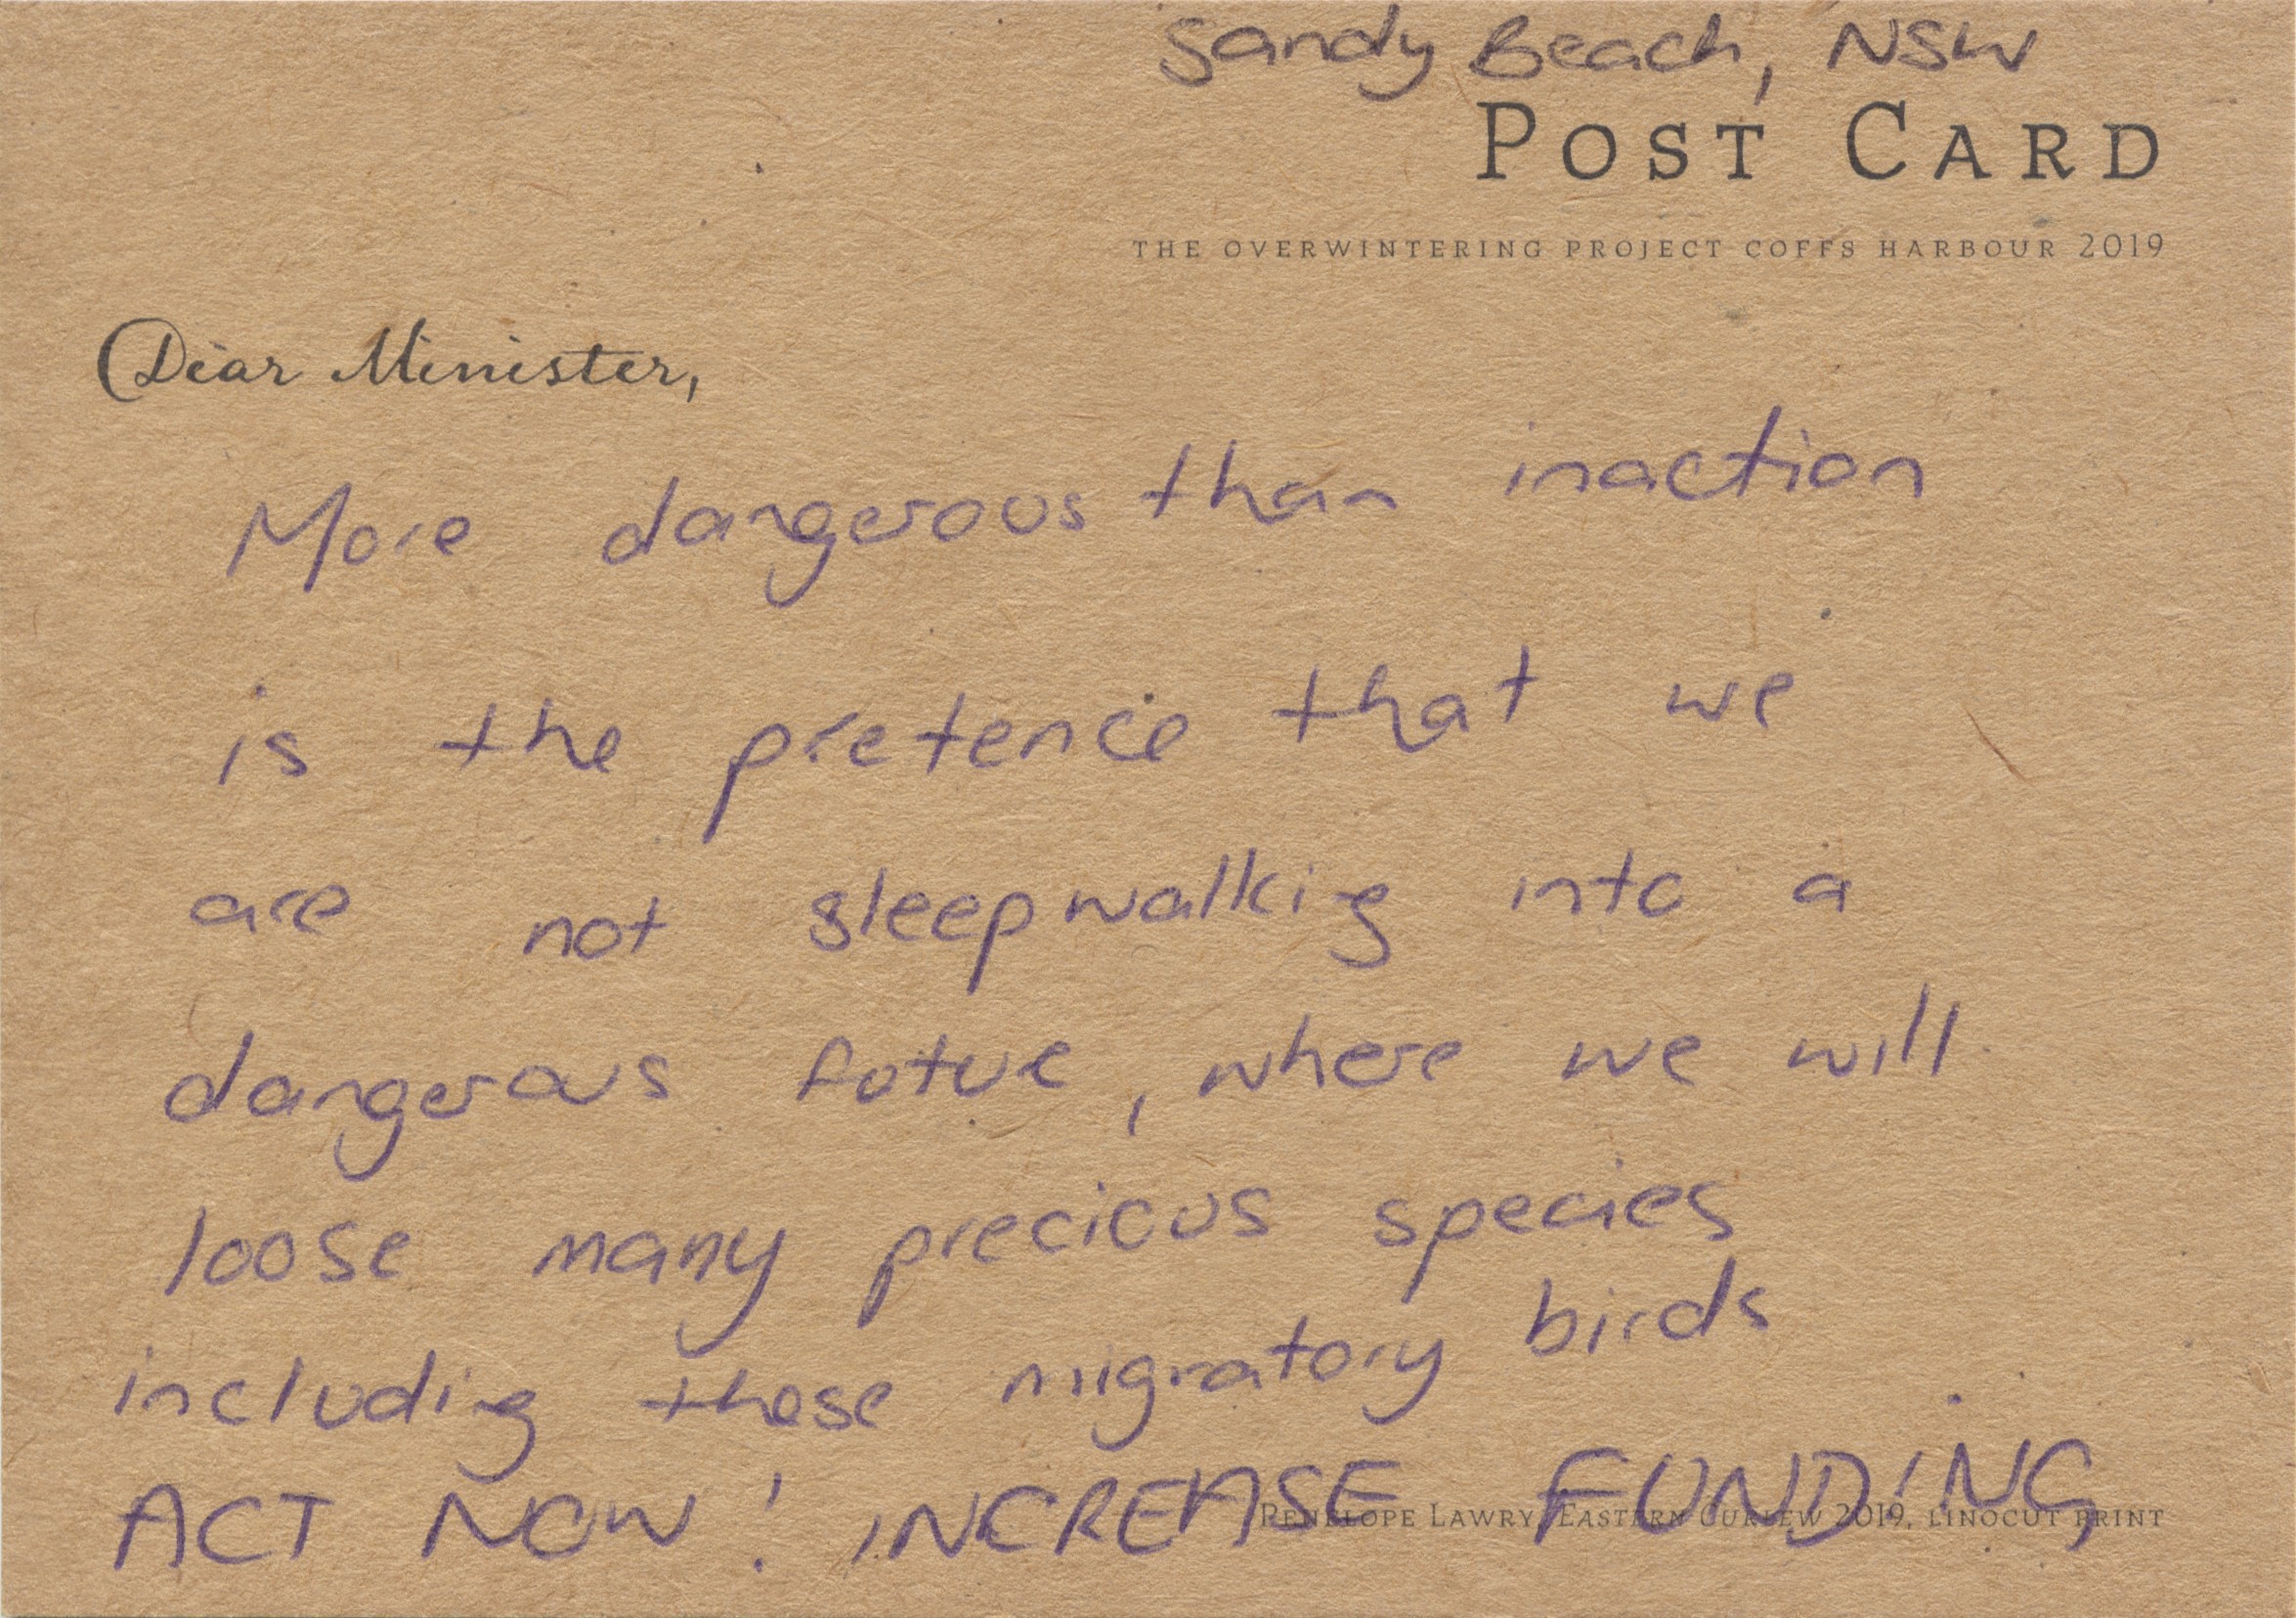 Sandy Beach, NSW
POST CARD
THE OVERWINTERING PROJECT COFFS HARBOUR 2019
Dear Minister,
More dangerous than inaction
is the pretence that we
are not sleepwalking into a
dangerous future, where we will
loose many precious species
including these migratory birds
ACT NOW! INCREASE FUNDING
PENELOPE LAWRY, EASTERN CURLEW 2019, LINOCUT PRINT